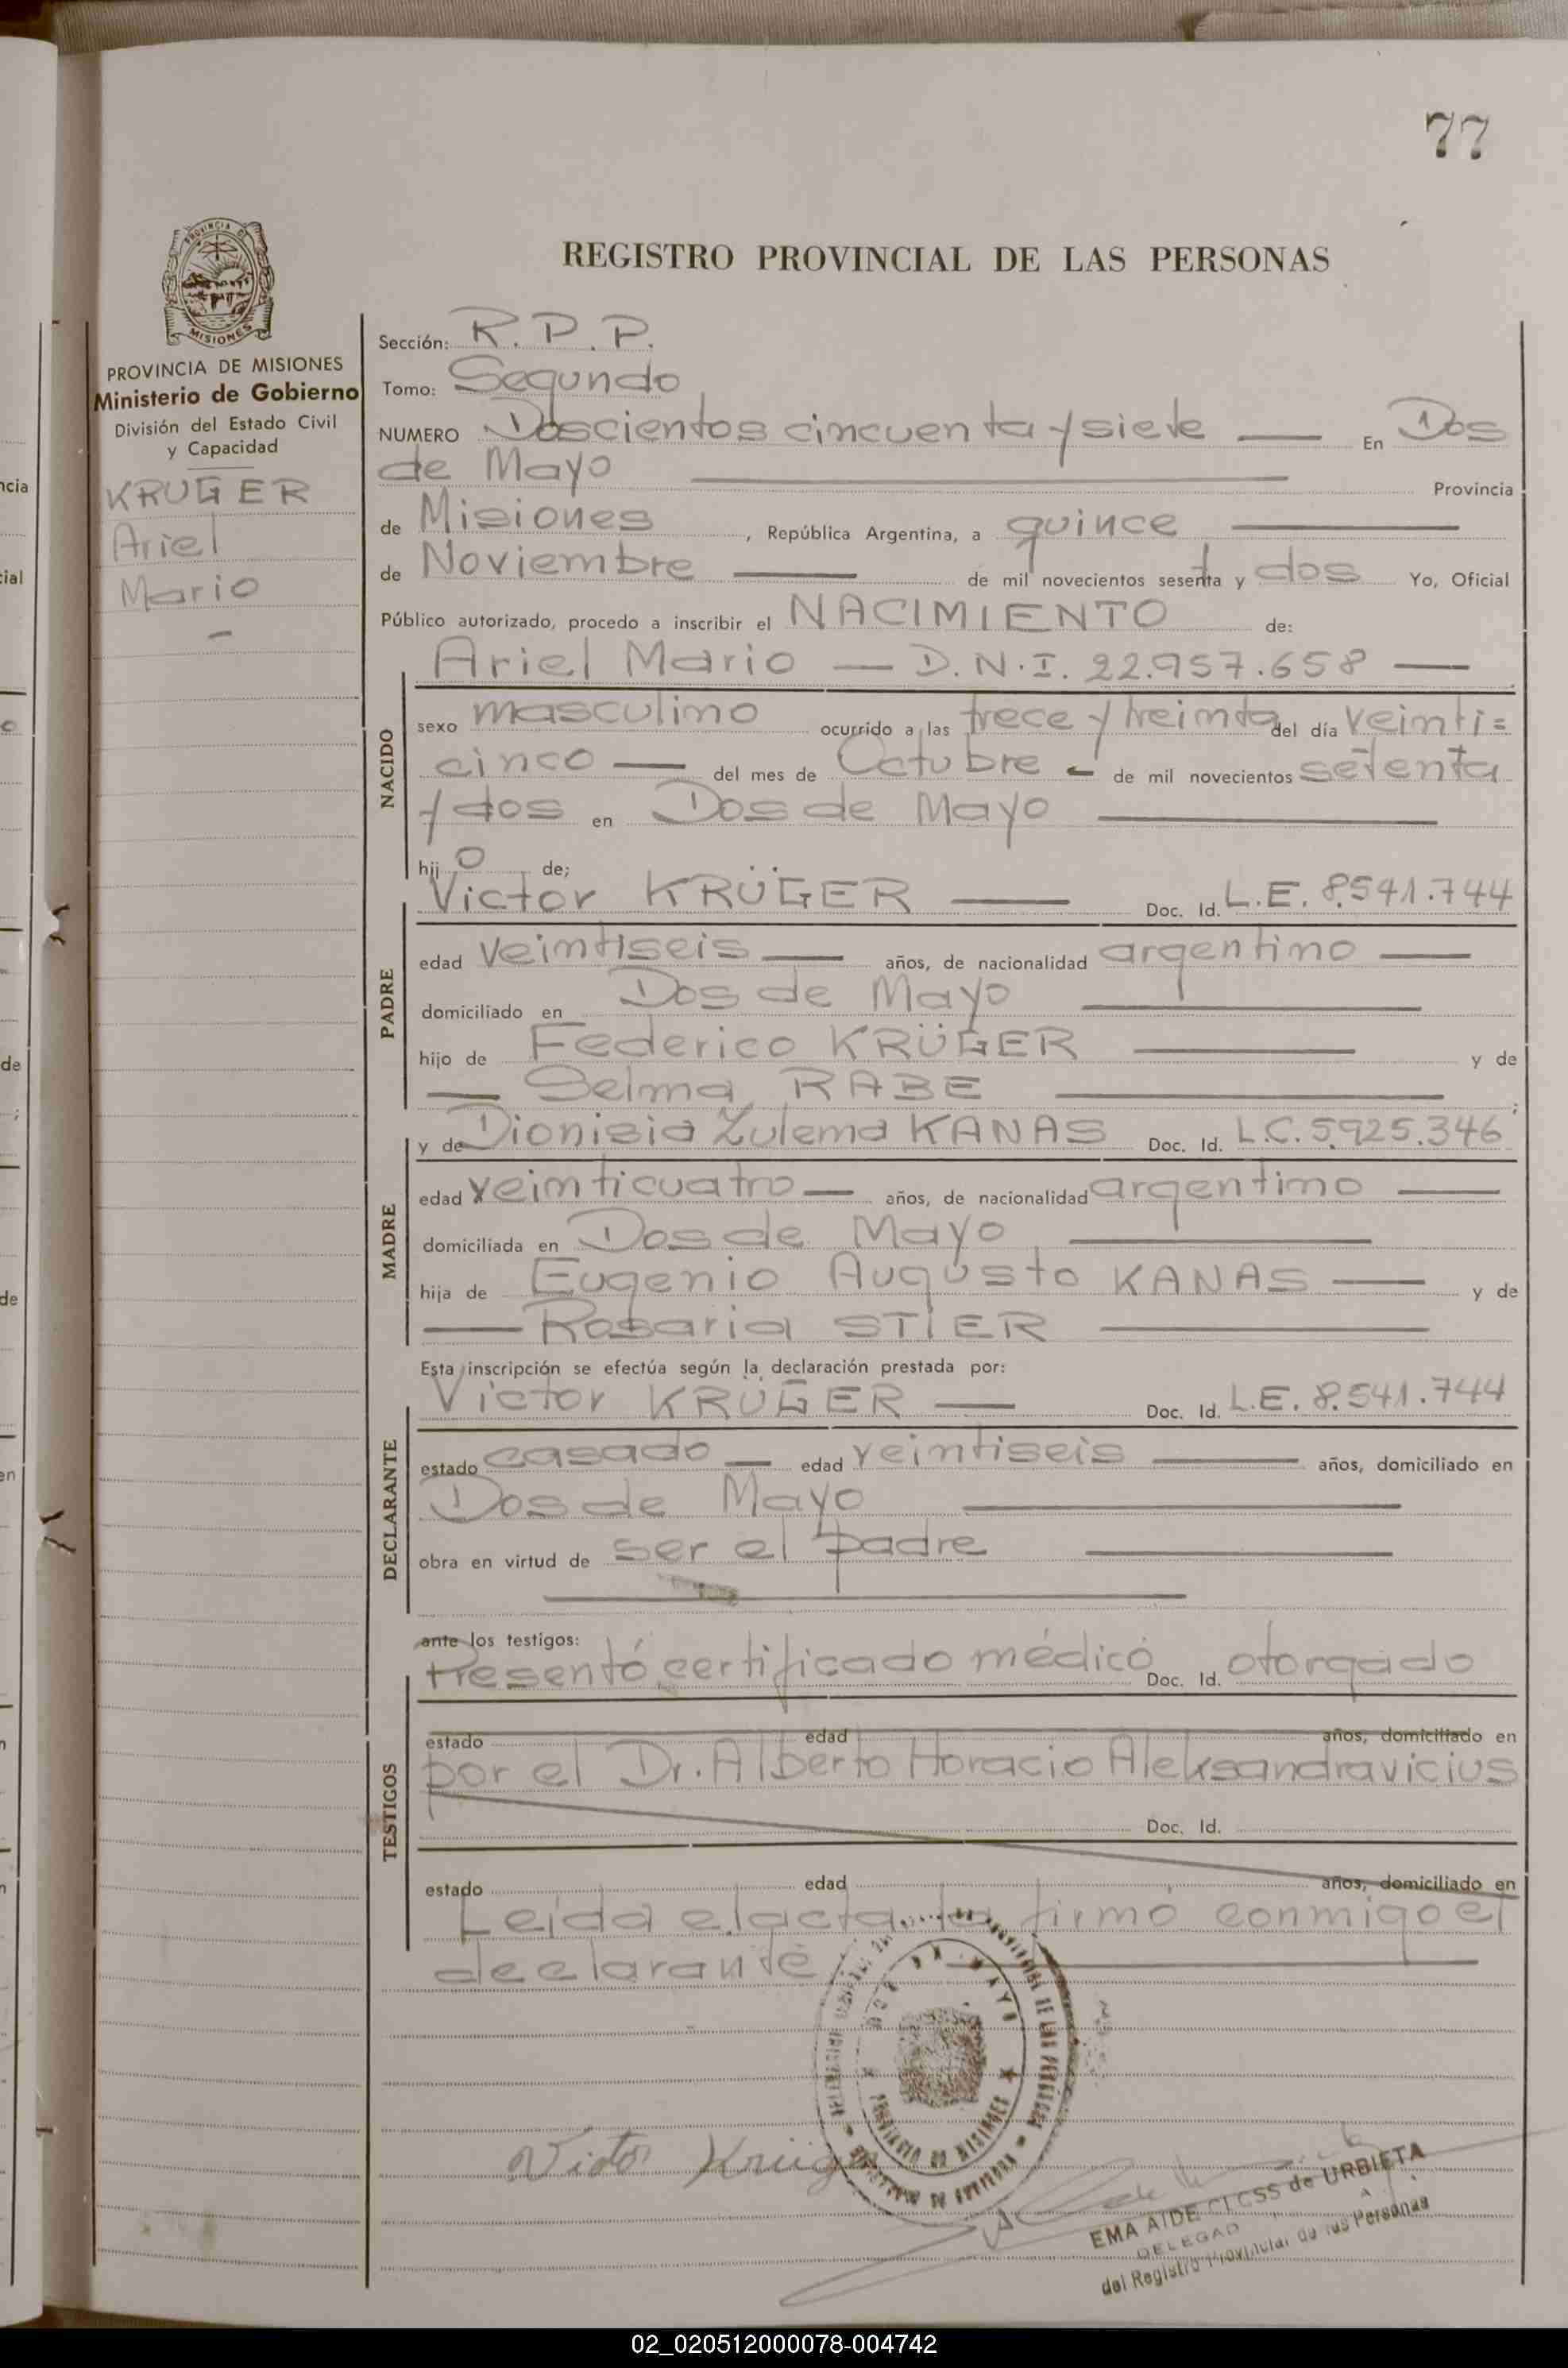 77
PROVINCIA DE MISIONES
Ministerio de Gobierno
División del Estado Civil
y Capacidad
KRUGER
Ariel
Mario
REGISTRO PROVINCIAL DE LAS PERSONAS
Sección: R.P.P.
Tomo: Segundo
NUMERO Doscientos cincuenta y siete — En Dos
de Mayo — Provincia
de Misiones, República Argentina, a quince —
de Noviembre — de mil novecientos sesenta y dos Yo, Oficial
Público autorizado, procedo a inscribir el NACIMIENTO de:
Ariel Mario — D.N.I. 22.957.658 —
NACIDO
sexo masculino ocurrido a las trece y treinta del día veinti=
cinco — del mes de Octubre - de mil novecientos setenta
y dos en Dos de Mayo —
hij o de;
Victor KRÜGER — Doc. Id. L.E. 8.541.744
PADRE
edad veintiseis — años, de nacionalidad argentino —
domiciliado en Dos de Mayo —
hijo de Federico KRÜGER — y de
— Selma RABE — ;
y de Dionisia Zulema KANAS Doc. Id. L.C. 5.925.346
MADRE
edad veinticuatro — años, de nacionalidad argentino —
domiciliada en Dos de Mayo —
hija de Eugenio Augusto KANAS — y de
— Rosaria STIER —
Esta inscripción se efectúa según la declaración prestada por:
Victor KRÜGER — Doc. Id. L.E. 8.541.744
DECLARANTE
estado casado — edad veintiseis — años, domiciliado en
Dos de Mayo —
obra en virtud de ser el padre —
ante los testigos:
Presentó certificado médico Doc. Id. otorgado
TESTIGOS
estado edad años, domiciliado en
por el Dr. Alberto Horacio Aleksandravicius
Doc. Id.
estado edad años, domiciliado en
Leída el acta, la firmó conmigo el
declarante —
DOS DE MAYO
PROVINCIA DE MISIONES
Victor Krüger
EMA AIDE CLOSS de URBIETA
DELEGAD
del Registro Provincial de las Personas
02_020512000078-004742